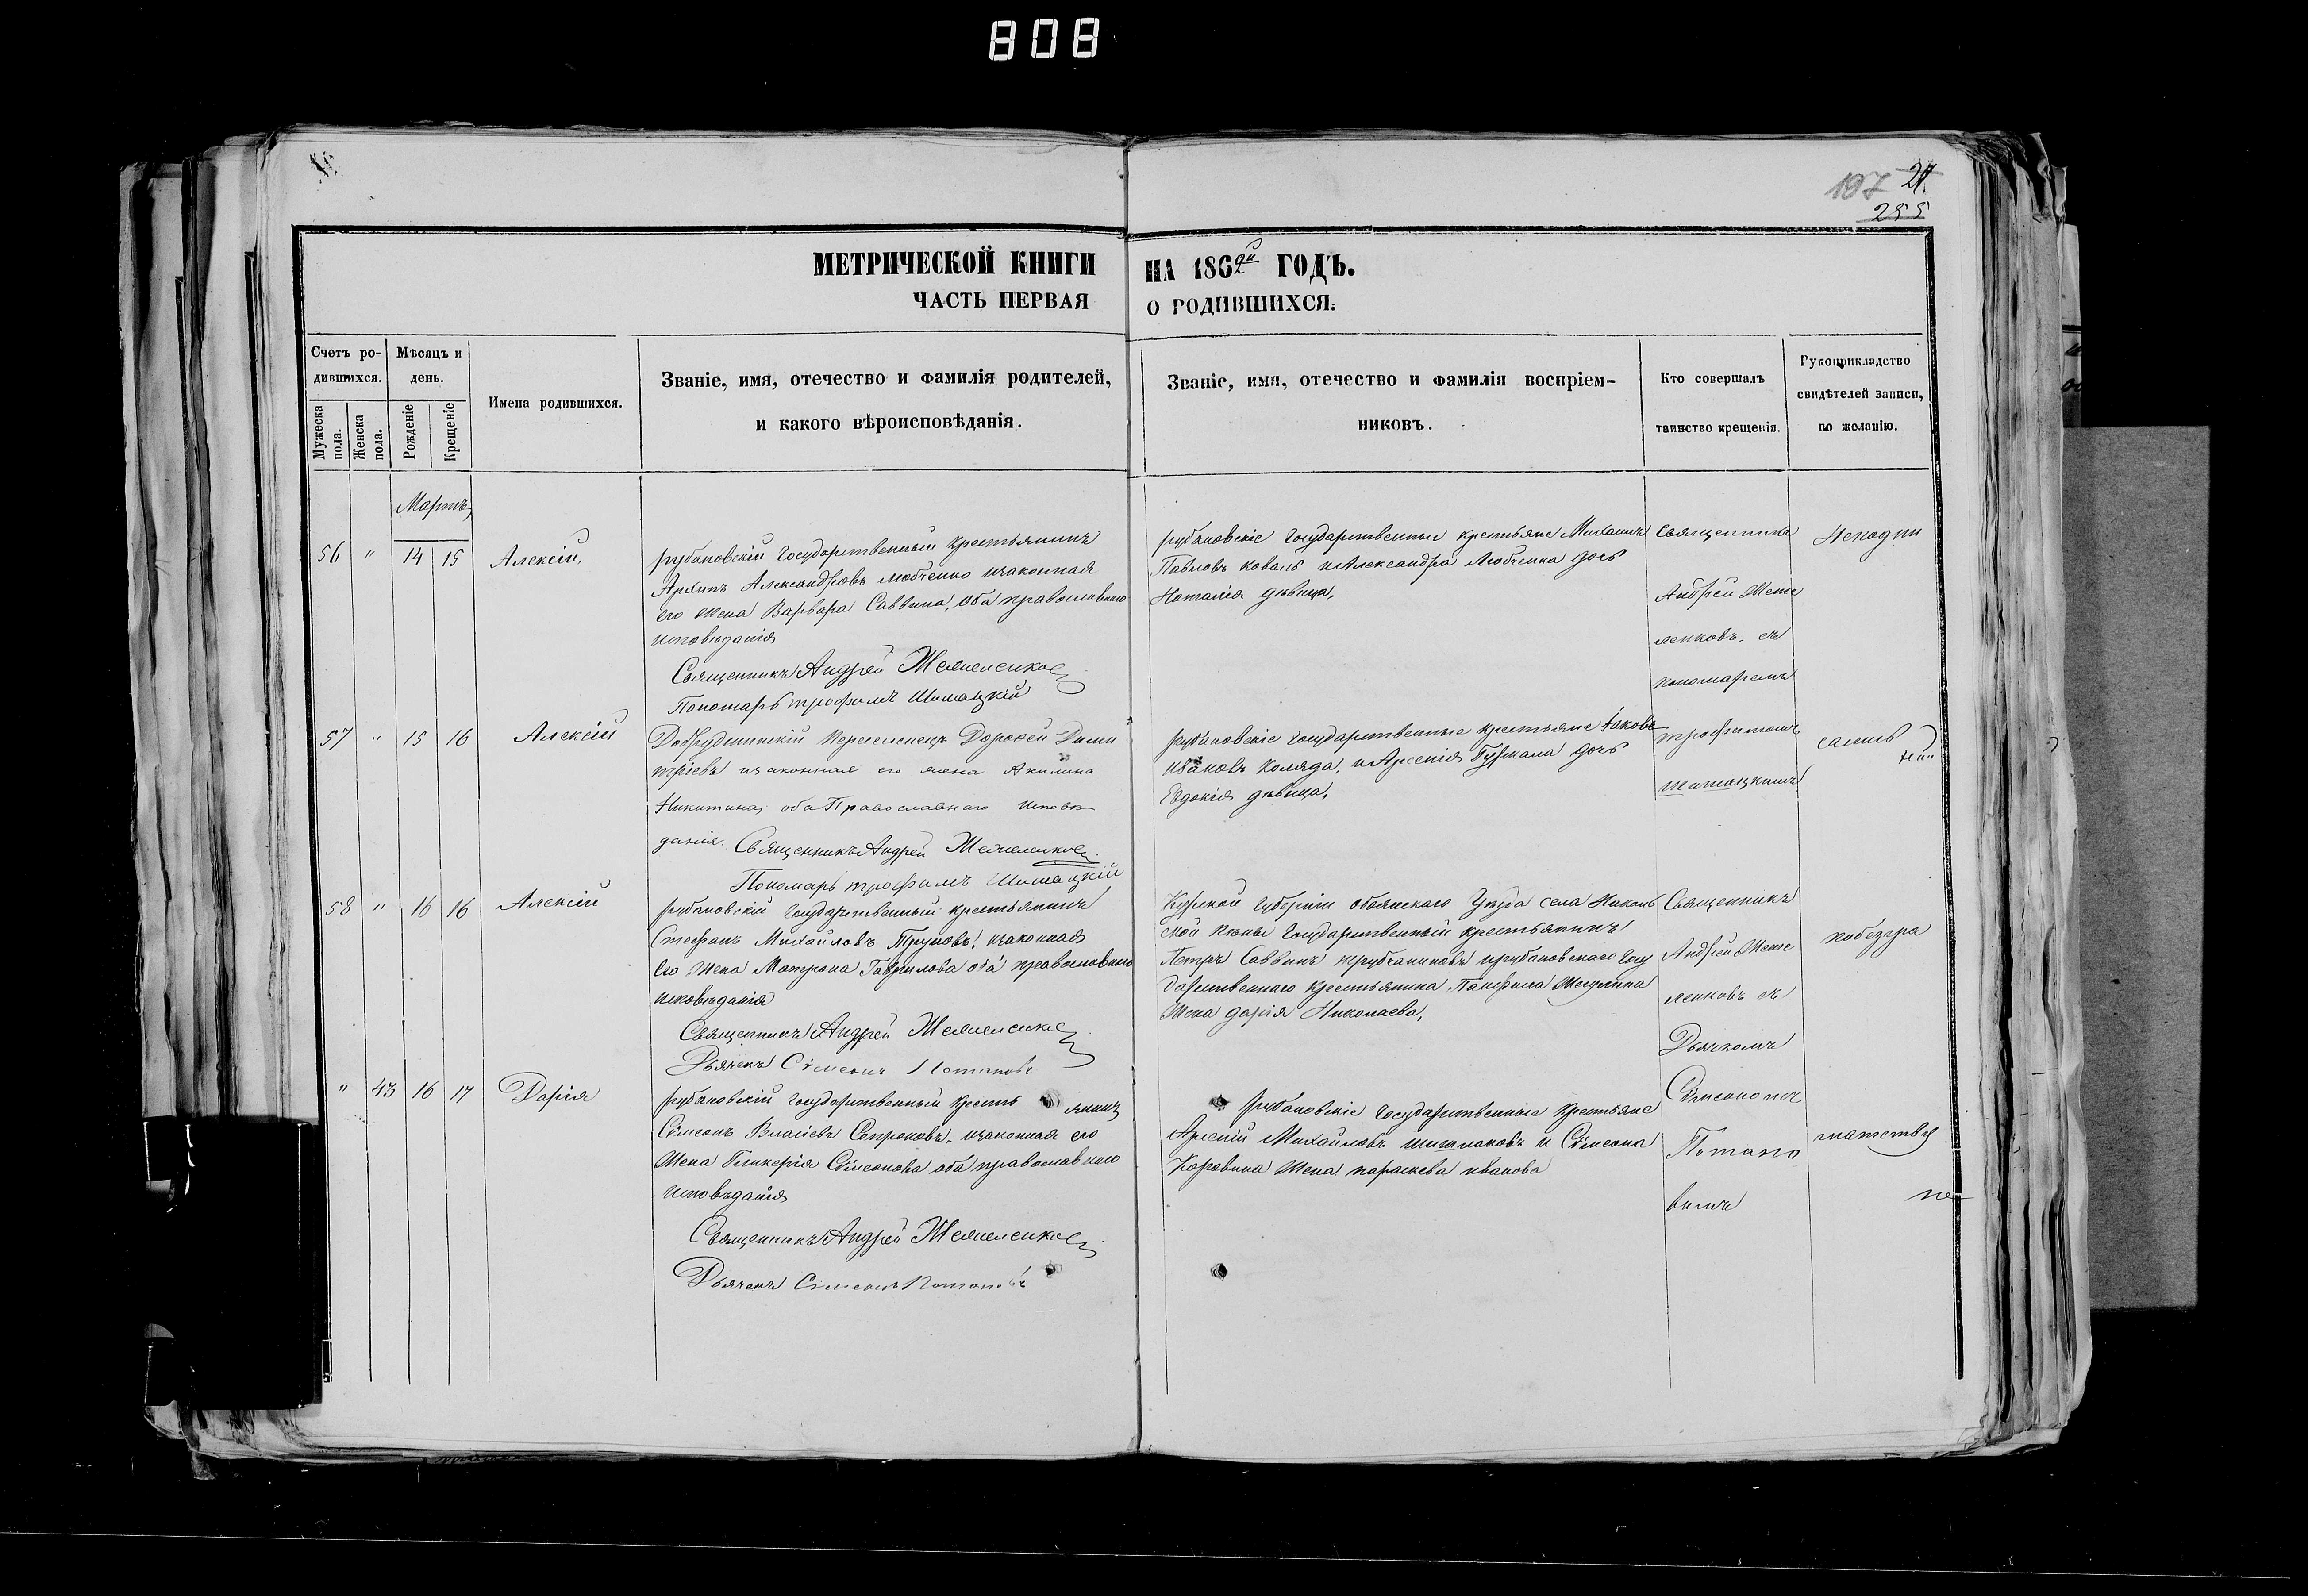 808
197 24
255
МЕТРИЧЕСКОЙ КНИГИ НА 1862й ГОДЪ.
ЧАСТЬ ПЕРВАЯ О РОДИВШИХСЯ.
Счетъ ро-
дившихся.
Мужеска пола.
Женска пола.
Мѣсяцъ и
день.
Рожденіе
Крещеніе
Имена родившихся.
Званіе, имя, отечество и фамилія родителей,
и какого вѣроисповѣданія.
Званіе, имя, отечество и фамилія воспріем-
никовъ.
Кто совершалъ
таинство крещенія.
Рукоприкладство
свидѣтелей записи,
по желанію.
Мартъ
56 " 14 15 Алексій,
рубановскій Государственный крестьянинъ
Александровъ Любченко изаконная
его жена Варвара Саввина, оба православнаго
исповѣданія
Священникъ Андрей
Пономарь трофимъ
рубановскіе Государственные крестьяне Михаилъ
Павловъ коваль иАлександра Любченка дочь
Наталія дѣвица,
Священникъ
Андрей
съ
пономаремъ
57 " 15 16 Алексій
Переселенецъ Дорофей Дими
тріевъ изаконная его жена Акилина
Никитина, оба Православнаго исповѣ
данія. Священникъ Андрей
Пономарь трофимъ
рубановскіе Государственные крестьяне Іаковъ
Ивановъ Коляда, иАрсенія дочь
Евдокія дѣвица,
трофимомъ
58 " 16 16 Алексій
рубановскій Государственный крестьянинъ
Стефанъ Михайловъ Труновъ, изаконная
его жена Матрона Гаврилова оба православнаго
исповѣданія
Священникъ Андрей
Дьячекъ Сімеонъ Потаповъ
Курской Губерніи обоянскаго Уѣзда села Николь
ской Государственный крестьянинъ
Петръ Саввинъ ирубановскаго Госу
дарственнаго крестьянина Панфила
жена дарія Николаева,
Священникъ
Андрей
съ
Дьячкомъ
" 43 16 17 Дарія
рубановскій Государственный кресть янинъ
Сімеонъ Власіевъ изаконная его
жена Гликерія Сімеонова оба православнаго
исповѣданія
Священникъ Андрей
Дьячекъ Сімеонъ Потаповъ
рубановскіе Государственные крестьяне
Арсеній Михайловъ и Сімеона
Коровина жена параскева иванова
Сімеономъ
Потапо
вымъ
не